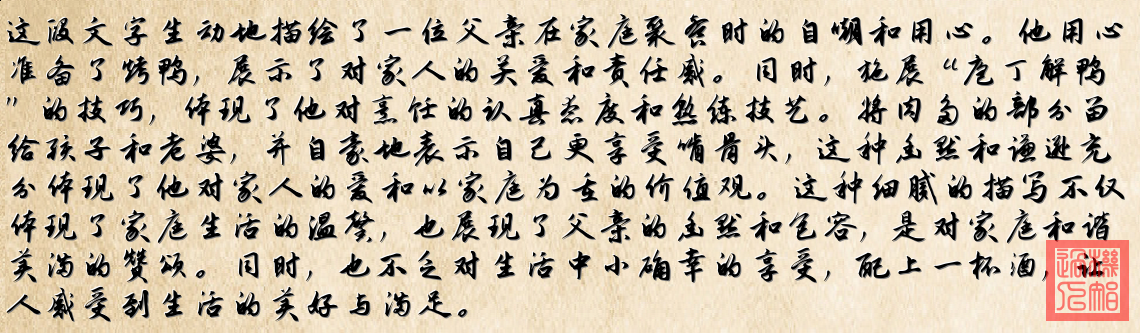 这段文字生动地描绘了一位父亲在家庭聚餐时的自嘲和用心。他用心
准备了烤鸭，展示了对家人的关爱和责任感。同时，施展“庖丁解鸭
”的技巧，体现了他对烹饪的认真态度和熟练技艺。将肉多的部分留
给孩子和老婆，并自豪地表示自己更享受啃骨头，这种幽默和谦逊充
分体现了他对家人的爱和以家庭为重的价值观。这种细腻的描写不仅
体现了家庭生活的温馨，也展现了父亲的幽默和包容，是对家庭和谐
美满的赞颂。同时，也不乏对生活中小确幸的享受，配上一杯酒，让
人感受到生活的美好与满足。